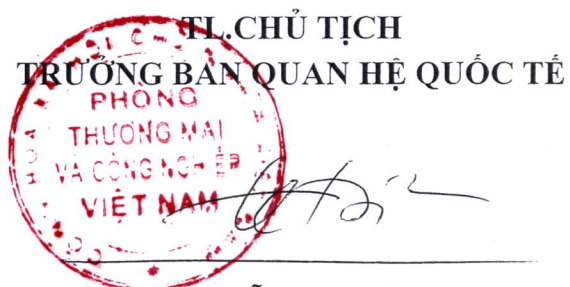 TL.CHỦ TỊCH
TRƯỞNG BAN QUAN HỆ QUỐC TẾ
PHÒNG
THƯƠNG MẠI
VÀ CÔNG NGHIỆP
VIỆT NAM